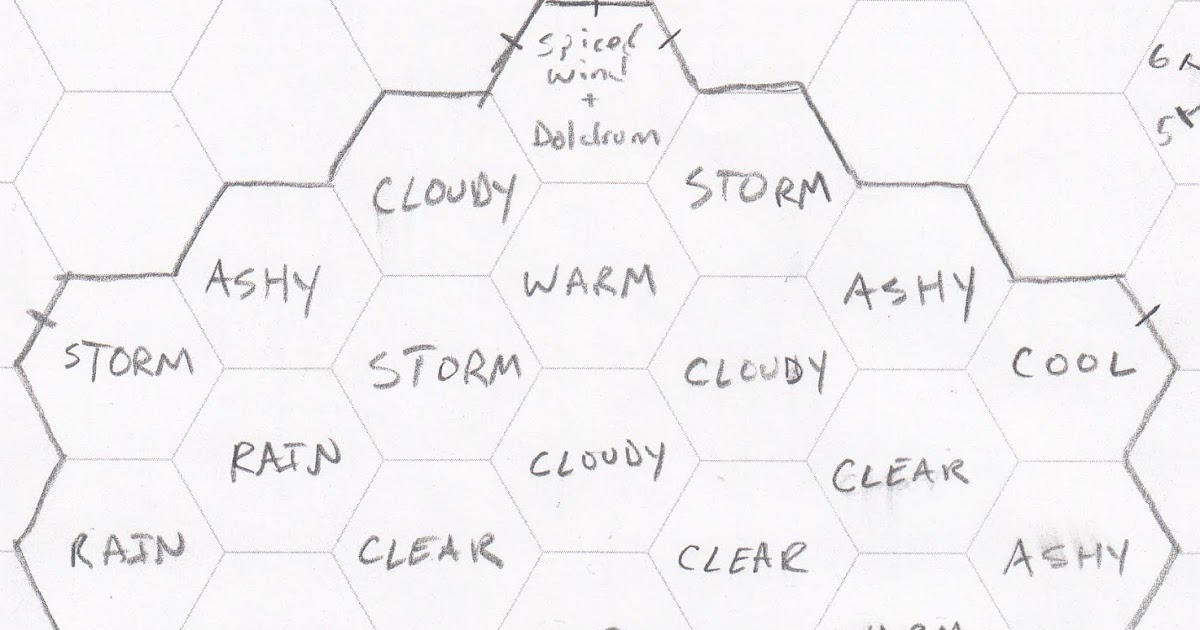 spiced
wind
+
Doldrum
CLOUDY
STORM
ASHY
WARM
ASHY
STORM
STORM
CLOUDY
COOL
RAIN
CLOUDY
CLEAR
RAIN
CLEAR
CLEAR
ASHY
6
5